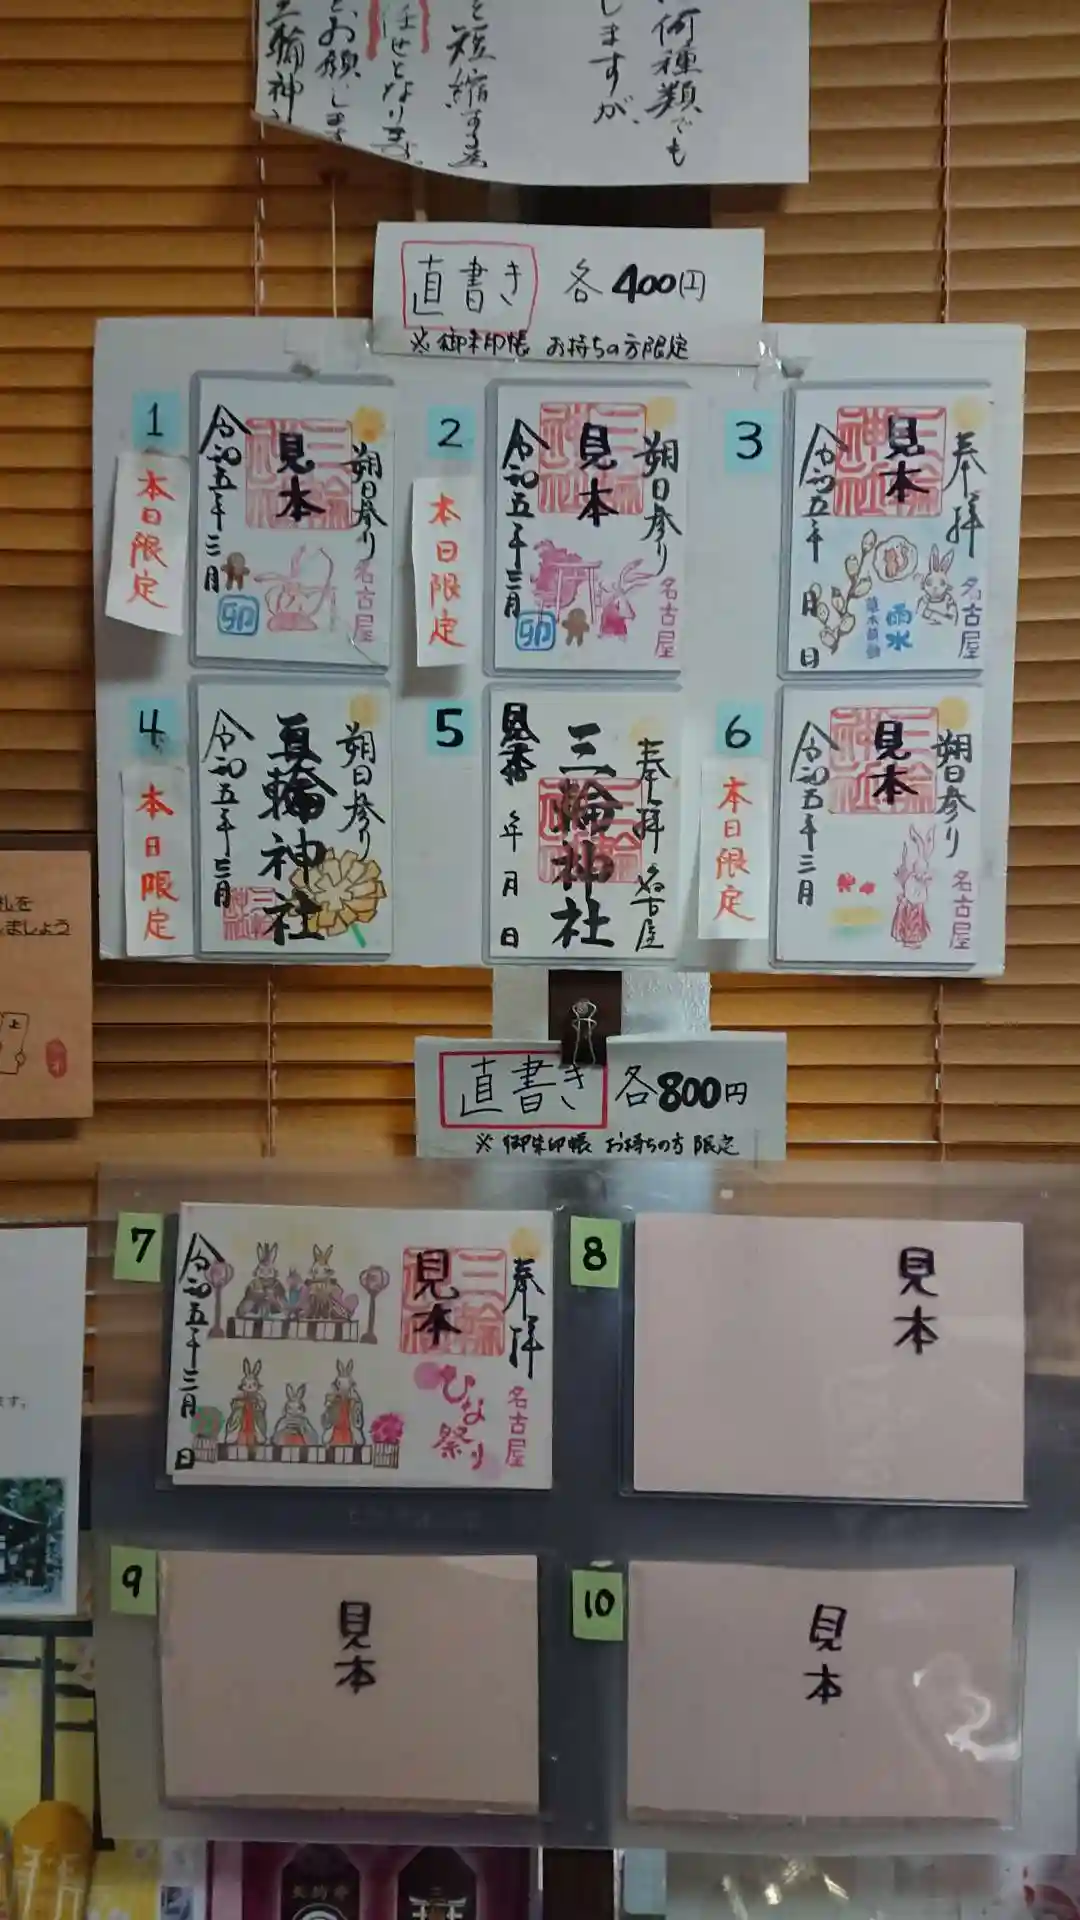 何種類でも
しますが、
と短縮する為
任せとなります
とお願いします
三輪神社
直書き 各400円
※御朱印帳 お持ちの方限定
1
本日限定
朔日参り
名古屋
三輪神社
見本
卯
令和五年三月
2
本日限定
朔日参り
名古屋
三輪神社
見本
卯
令和五年三月
3
奉拝
名古屋
三輪神社
見本
雨水
草木萌動
令和五年 月 日
4
本日限定
朔日参り
真輪神社
令和五年三月
5
奉拝 名古屋
三輪神社
見本
年 月 日
6
本日限定
朔日参り
名古屋
三輪神社
見本
令和五年三月
直書き 各800円
※御朱印帳 お持ちの方限定
7
奉拝
名古屋
三輪神社
見本
ひな祭り
令和五年三月 日
8
見本
9
見本
10
見本
札を
しましょう
上
ます。